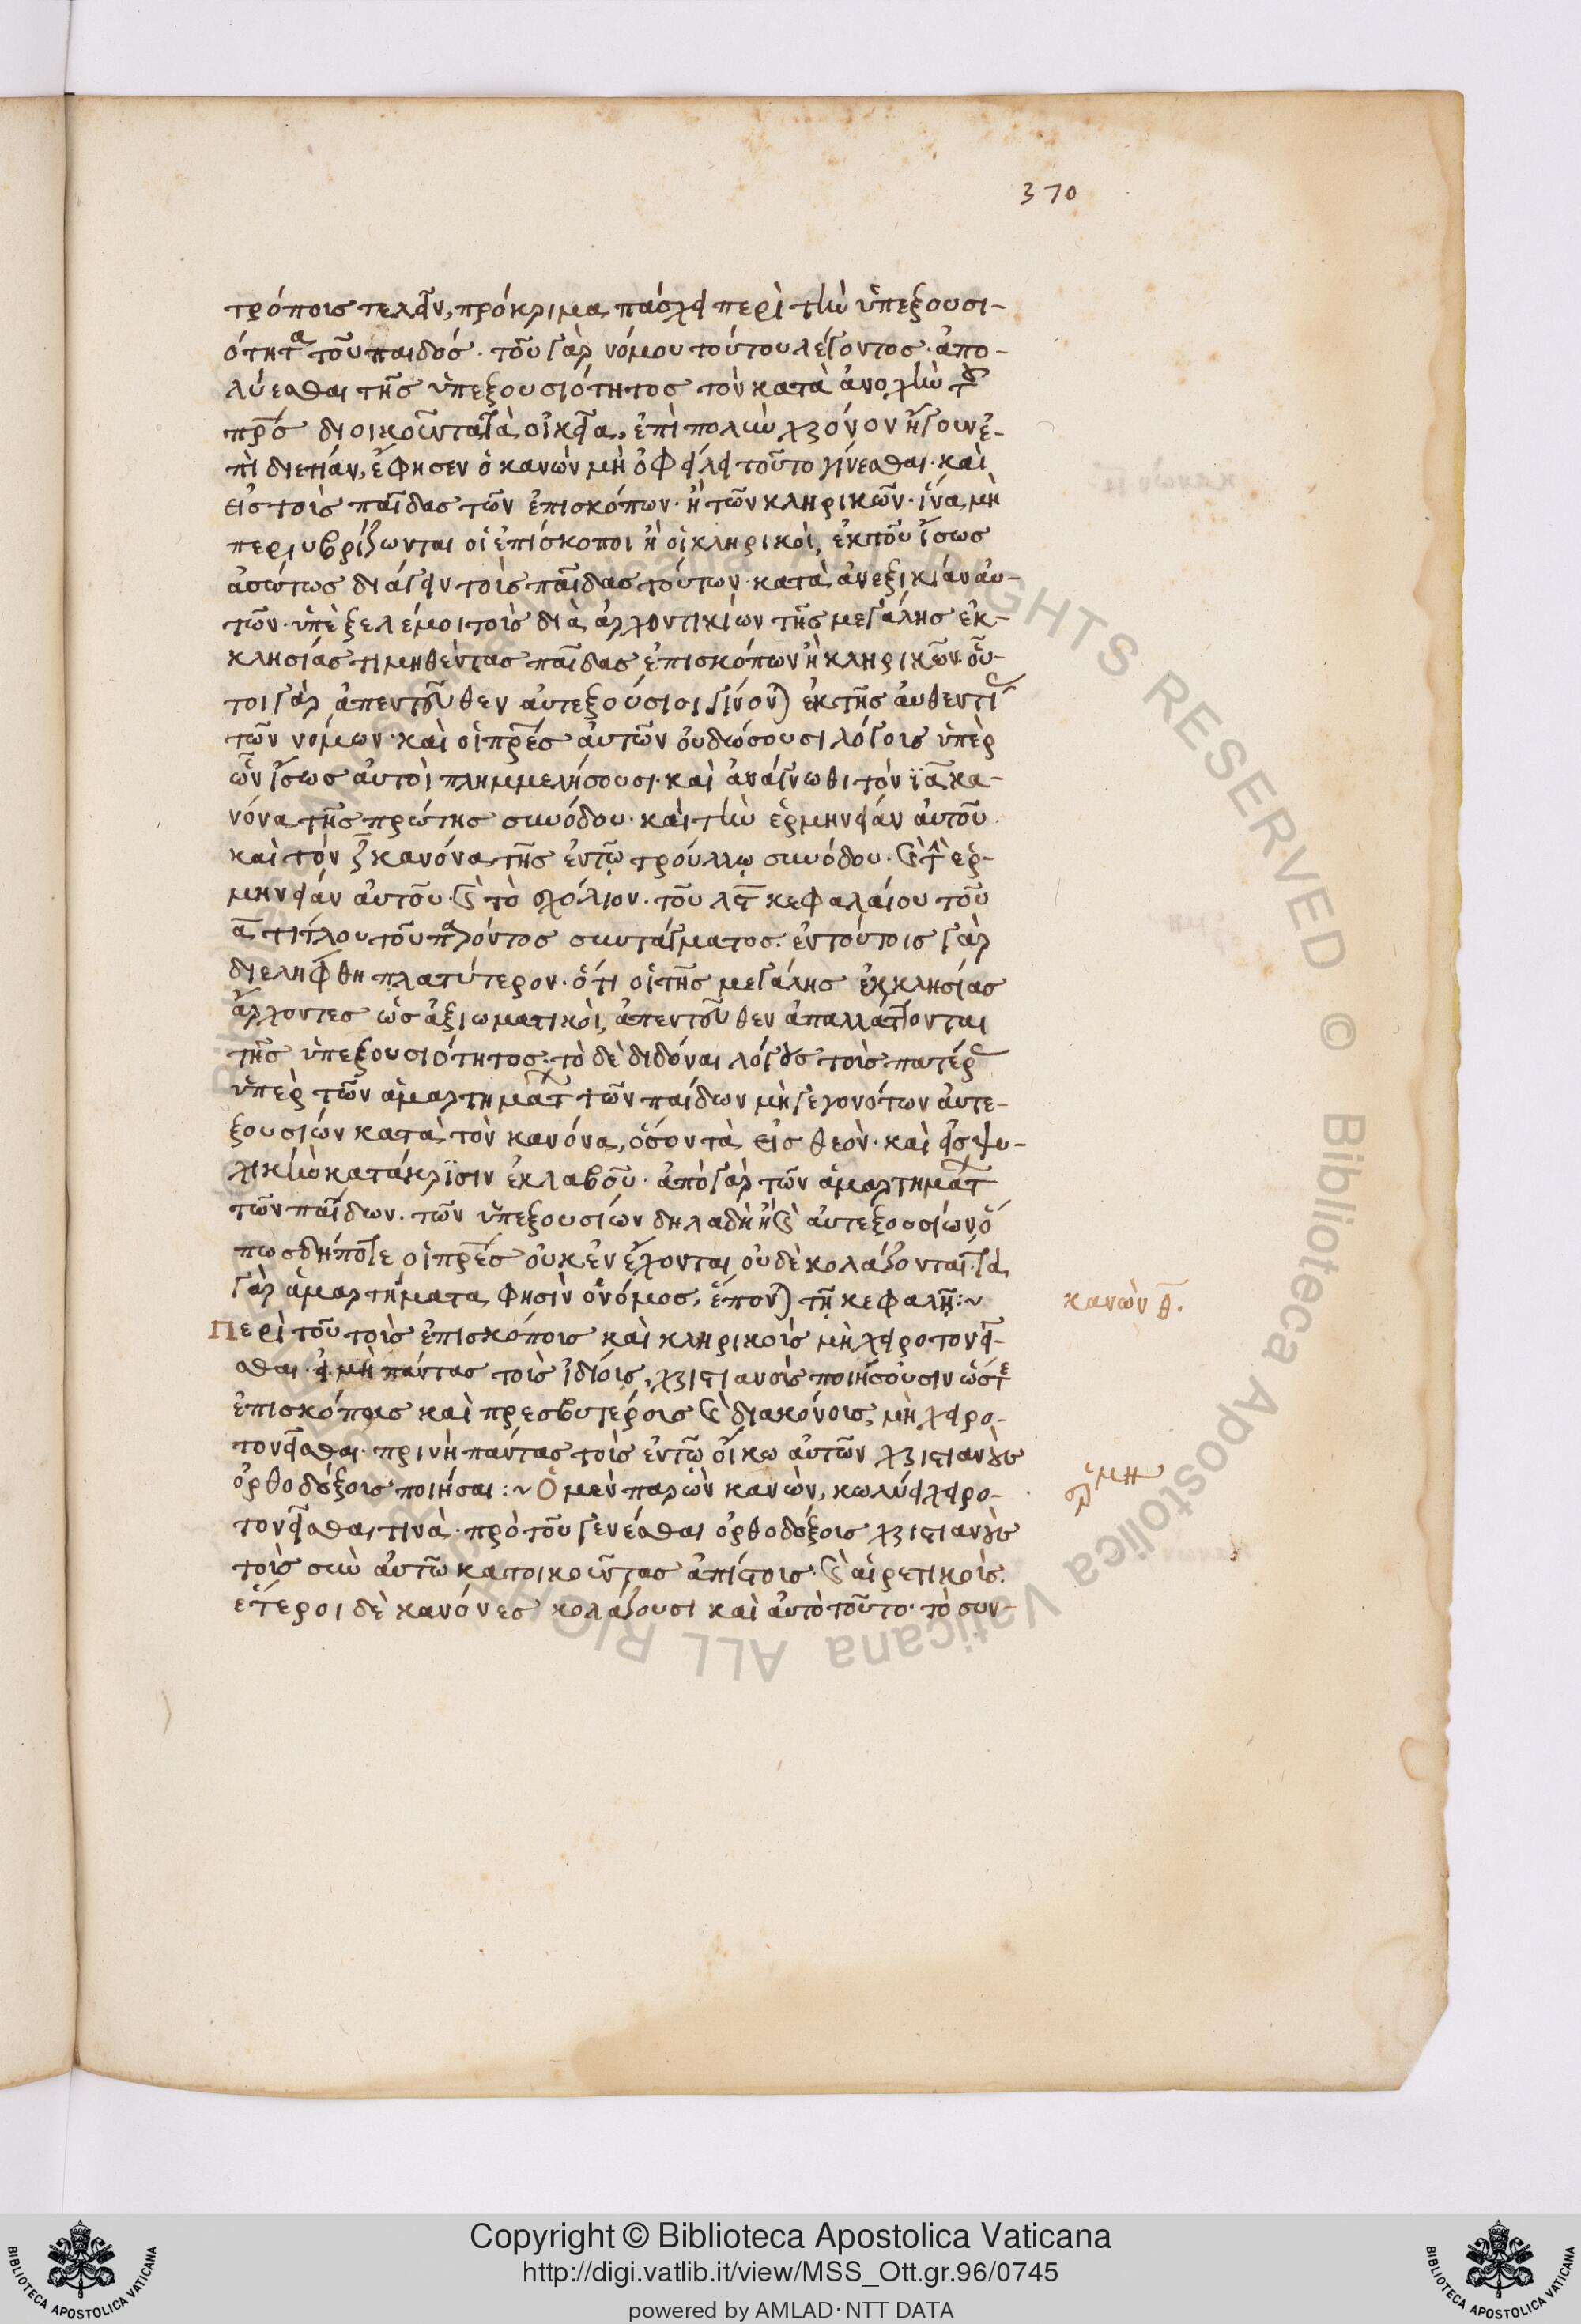 370
τρόποις τελεῖν, πρόκριμα πάσχει περὶ τὴν ὑπεξουσι-
ότητα τοῦ παιδός. τοῦ γὰρ νόμου τούτου λέγοντος. ἀπο-
λύεσθαι τῆς ὑπεξουσιότητος τὸν κατὰ ἀνοχὴν τοῦ
πρς διοικοῦντα τὰ οἰκεῖα, ἐπὶ πολὺν χρόνον ἤγουν ἐ-
πὶ διετίαν, ἔφησεν ὁ κανὼν μὴ ὀφείλει τοῦτο γίνεσθαι. καὶ
εἰς τοὺς παῖδας τῶν ἐπισκόπων. ἢ τῶν κληρικῶν. ἵνα μὴ
περιυβρίζωνται οἱ ἐπίσκοποι ἢ οἱ κληρικοὶ, ἐκ τοῦ ἴσως
ἀσώτως διάγειν τοὺς παῖδας τούτων κατὰ ἀνεξικίαν αὐ-
τῶν. ὑπέξελέ μοι τοὺς διὰ ἀρχοντικίων τῆς μεγάλης ἐκ-
κλησίας τιμηθέντας παῖδας ἐπισκόπων ἢ κληρικῶν. οὗ-
τοι γὰρ ἀπεντεῦθεν αὐτεξούσιοι γίνον) ἐκ τῆς αὐθεντί
τῶν νόμων. καὶ οἱ πρες αὐτῶν οὐ δώσουσι λόγους ὑπὲρ
ὧν ἴσως αὐτοὶ πλημμελήσουσι. καὶ ἀνάγνωθι τὸν ια κα-
νόνα τῆς πρώτης συνόδου. καὶ τὴν ἑρμηνείαν αὐτοῦ.
καὶ τὸν ζ κανόνα τῆς ἐν τῷ τρούλλῳ συνόδου. καὶ τὴν ἑρ-
μηνείαν αὐτοῦ. καὶ τὸ σχόλιον. τοῦ λϛ κεφαλαίου τοῦ
α τίτλου τοῦ παρόντος συντάγματος. ἐν τούτοις γὰρ
διελήφθη πλατύτερον. ὅτι οἱ τῆς μεγάλης ἐκκλησίας
ἄρχοντες ὡς ἀξιωματικοὶ, ἀπεντεῦθεν ἀπαλλάττονται
τῆς ὑπεξουσιότητος. τὸ δὲ διδόναι λόγους τοὺς πατέρας
ὑπὲρ τῶν ἁμαρτημάτων τῶν παίδων μὴ γεγονότων αὐτε-
ξουσίων κατὰ τὸν κανόνα, ὅσον τὰ εἰς θεὸν. καὶ εἰς ψυ-
χικὴν κατάκρισιν ἐκλαβοῦ. ἀπὸ γὰρ τῶν ἁμαρτημάτων
τῶν παίδων. τῶν ὑπεξουσίων δηλαδὴ ἢ καὶ αὐτεξουσίων, ὁ
πωσδήποτε οἱ πρες οὐκ ἐνέχονται, οὐδὲ κολάζονται. τὰ
γὰρ ἁμαρτήματα φησὶν ὁ νόμος, ἕπον) τῇ κεφαλῇ:~
κανὼν θ.
Περὶ τοῦ τοὺς ἐπισκόπους καὶ κληρικοὺς μὴ χειροτονεῖ-
σθαι. εἰ μὴ πάντας τοὺς ἰδίους, χριστιανοὺς ποιήσουσιν ὥστε
ἐπισκόπους καὶ πρεσβυτέρους καὶ διακόνους, μὴ χειρο-
τονεῖσθαι. πρινὴ πάντας τοὺς ἐν τῷ οἴκω αὐτῶν χριστιανοὺς
ὀρθοδόξους ποιῆσαι:~ Ὁ μὲν παρὼν κανὼν, κωλύει χειρο-
ἑρμη
τονεῖσθαι τινὰ. πρὸ τοῦ γενέσθαι ὀρθοδόξους χριστιανοὺς
τοὺς σὺν αὐτῶ κατοικοῦντας ἀπίστους. καὶ αἱρετικοὺς.
ἕτεροι δὲ κανόνες κολάζουσι καὶ αὐτὸ τοῦτο. τὸ συν-
Copyright © Biblioteca Apostolica Vaticana
http://digi.vatlib.it/view/MSS_Ott.gr.96/0745
powered by AMLAD·NTT DATA